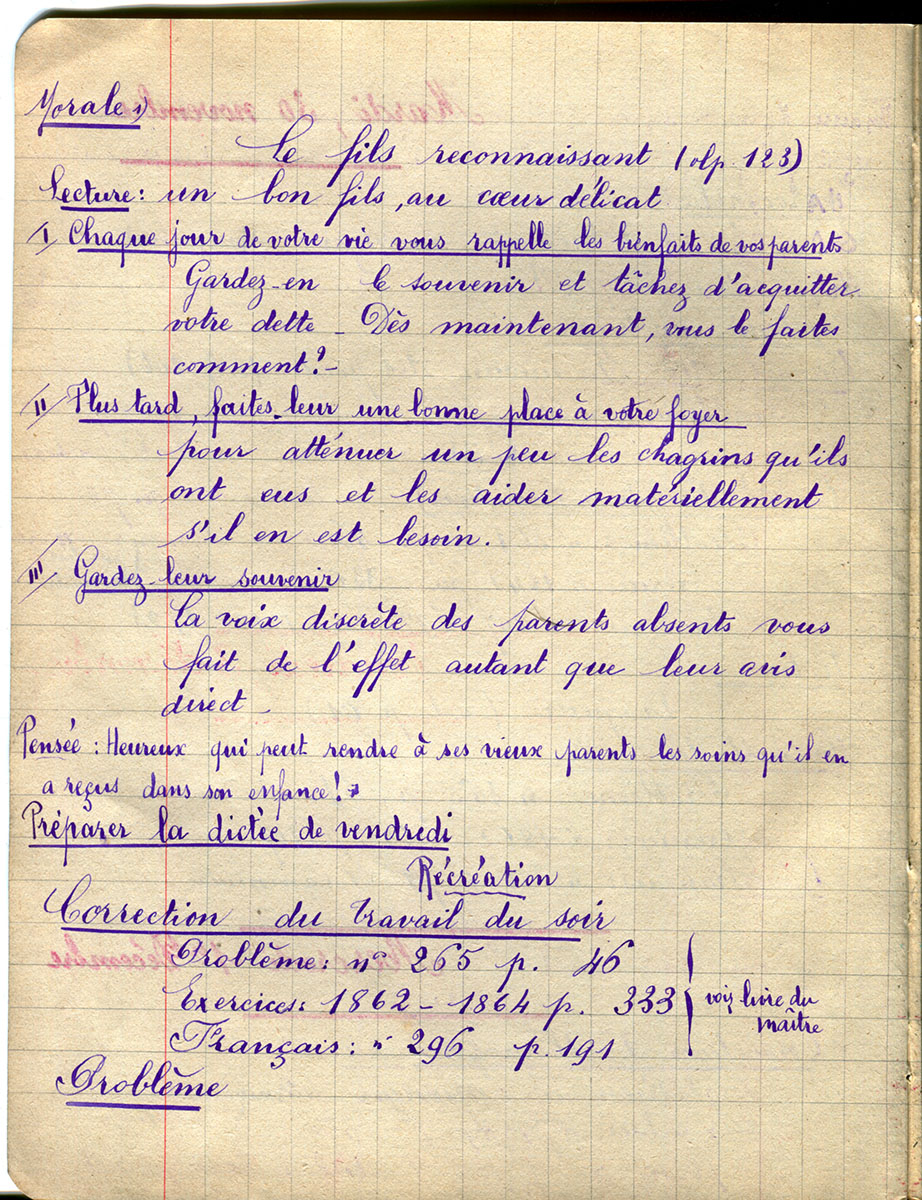 Morale 1)
Le fils reconnaissant (olp. 123)
Lecture : un bon fils, au cœur délicat
I Chaque jour de votre vie vous rappelle les bienfaits de vos parents
Gardez-en le souvenir et tâchez d'acquitter
votre dette - Dès maintenant, vous le faites
comment ? -
II Plus tard, faites-leur une bonne place à votre foyer
pour atténuer un peu les chagrins qu'ils
ont eus et les aider matériellement
s'il en est besoin.
III Gardez leur souvenir
La voix discrète des parents absents vous
fait de l'effet autant que leur avis
direct -
Pensée : Heureux qui peut rendre à ses vieux parents les soins qu'il en
a reçus dans son enfance !
Préparer la dictée de vendredi
Récréation
Correction du travail du soir
Problème : n° 265 p. 46
Exercices : 1862 - 1864 p. 333
voir livre du
maître
Français : n° 296 p. 191
Problème